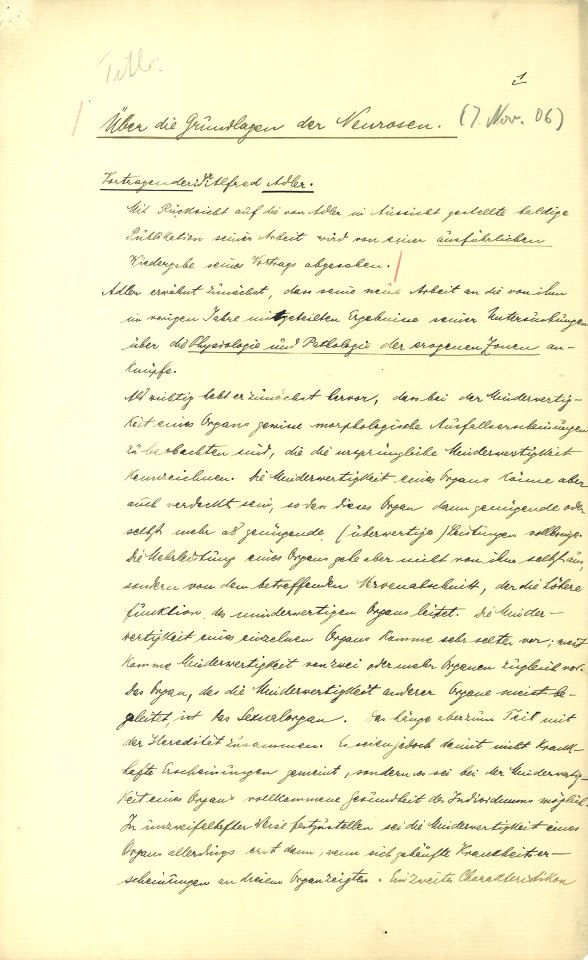 Titel.
1
Über die Grundlagen der Neurosen. (7. Nov. 06)
Vortragender: Dr Alfred Adler.
Mit Rücksicht auf die von Adler in Aussicht gestellte baldige
Publikation seiner Arbeit wird von einer ausführlichen
Wiedergabe seines Vortrags abgesehen.
Adler erwähnt zunächst, dass seine neue Arbeit an die von ihm
im vorigen Jahre mitgeteilten Ergebnisse seiner Untersuchungen
über die Physiologie und Pathologie der erogenen Zonen an-
knüpfe.
Als wichtig hebt er zunächst hervor, dass bei der Minderwertig-
keit eines Organs gewisse morphologische Ausfallserscheinungen
zu beobachten sind, die die ursprüngliche Minderwertigkeit
kennzeichnen. Die Minderwertigkeit eines Organs könne aber
auch verdeckt sein, so dass dieses Organ dann genügende oder
selbst mehr als genügende (überwertige) Leistungen vollbringe.
Die Mehrleistung eines Organs gehe aber nicht von ihm selbst aus,
sondern von dem betreffenden Nervenabschnitt, der die höhere
Funktion des minderwertigen Organs leitet. Die Minder-
wertigkeit eines einzelnen Organs komme sehr selten vor; meist
komme Minderwertigkeit von zwei oder mehr Organen zugleich vor.
Das Organ, das die Minderwertigkeit anderer Organe meist be-
gleitet, ist das Sexualorgan. Das hänge aber zum Teil mit
der Heredität zusammen. Es seien jedoch damit nicht krank-
hafte Erscheinungen gemeint, sondern es sei bei der Minderwertig-
keit eines Organs vollkommene Gesundheit des Individuums möglich.
In unzweifelhafter Weise festzustellen sei die Minderwertigkeit eines
Organs allerdings erst dann, wenn sich gehäufte Krankheitser-
scheinungen an diesem Organ zeigten. Ein zweites Charakteristikon